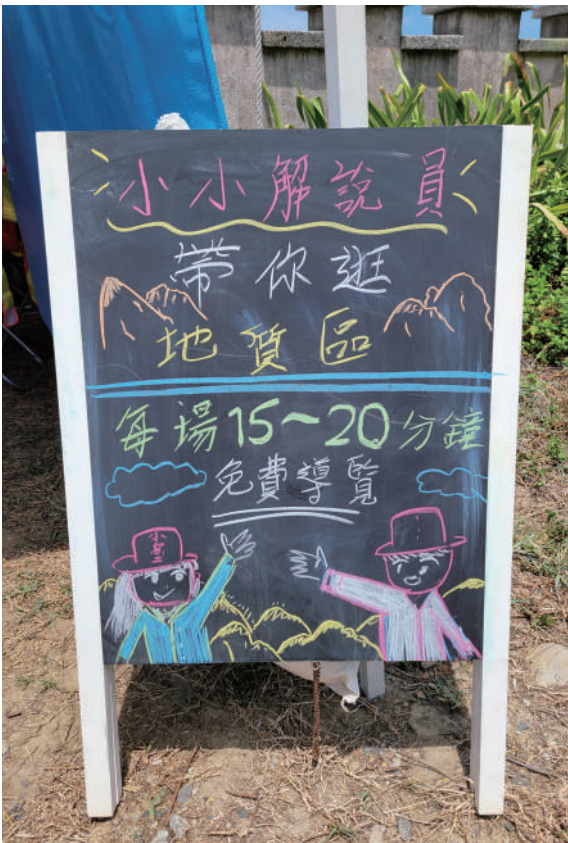 小小解說員
帶你逛
地質區
每場15~20分鐘
免費導覽